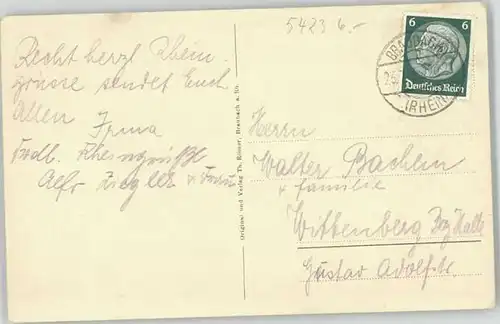 5423 6.-
Recht herzl. Rhein-
grüsse sendet Euch
Allen Irma
Frdl. Rheingrüße
Alfr. Ziegler u. Frau
Original und Verlag Th. Römer, Braubach a. Rh.
6 6
Deutsches Reich
BRAUBACH
(RHEIN)
Herrn
Walter Bachem
u. Familie
Wittenberg Bz Halle
Gustav Adolfstr.